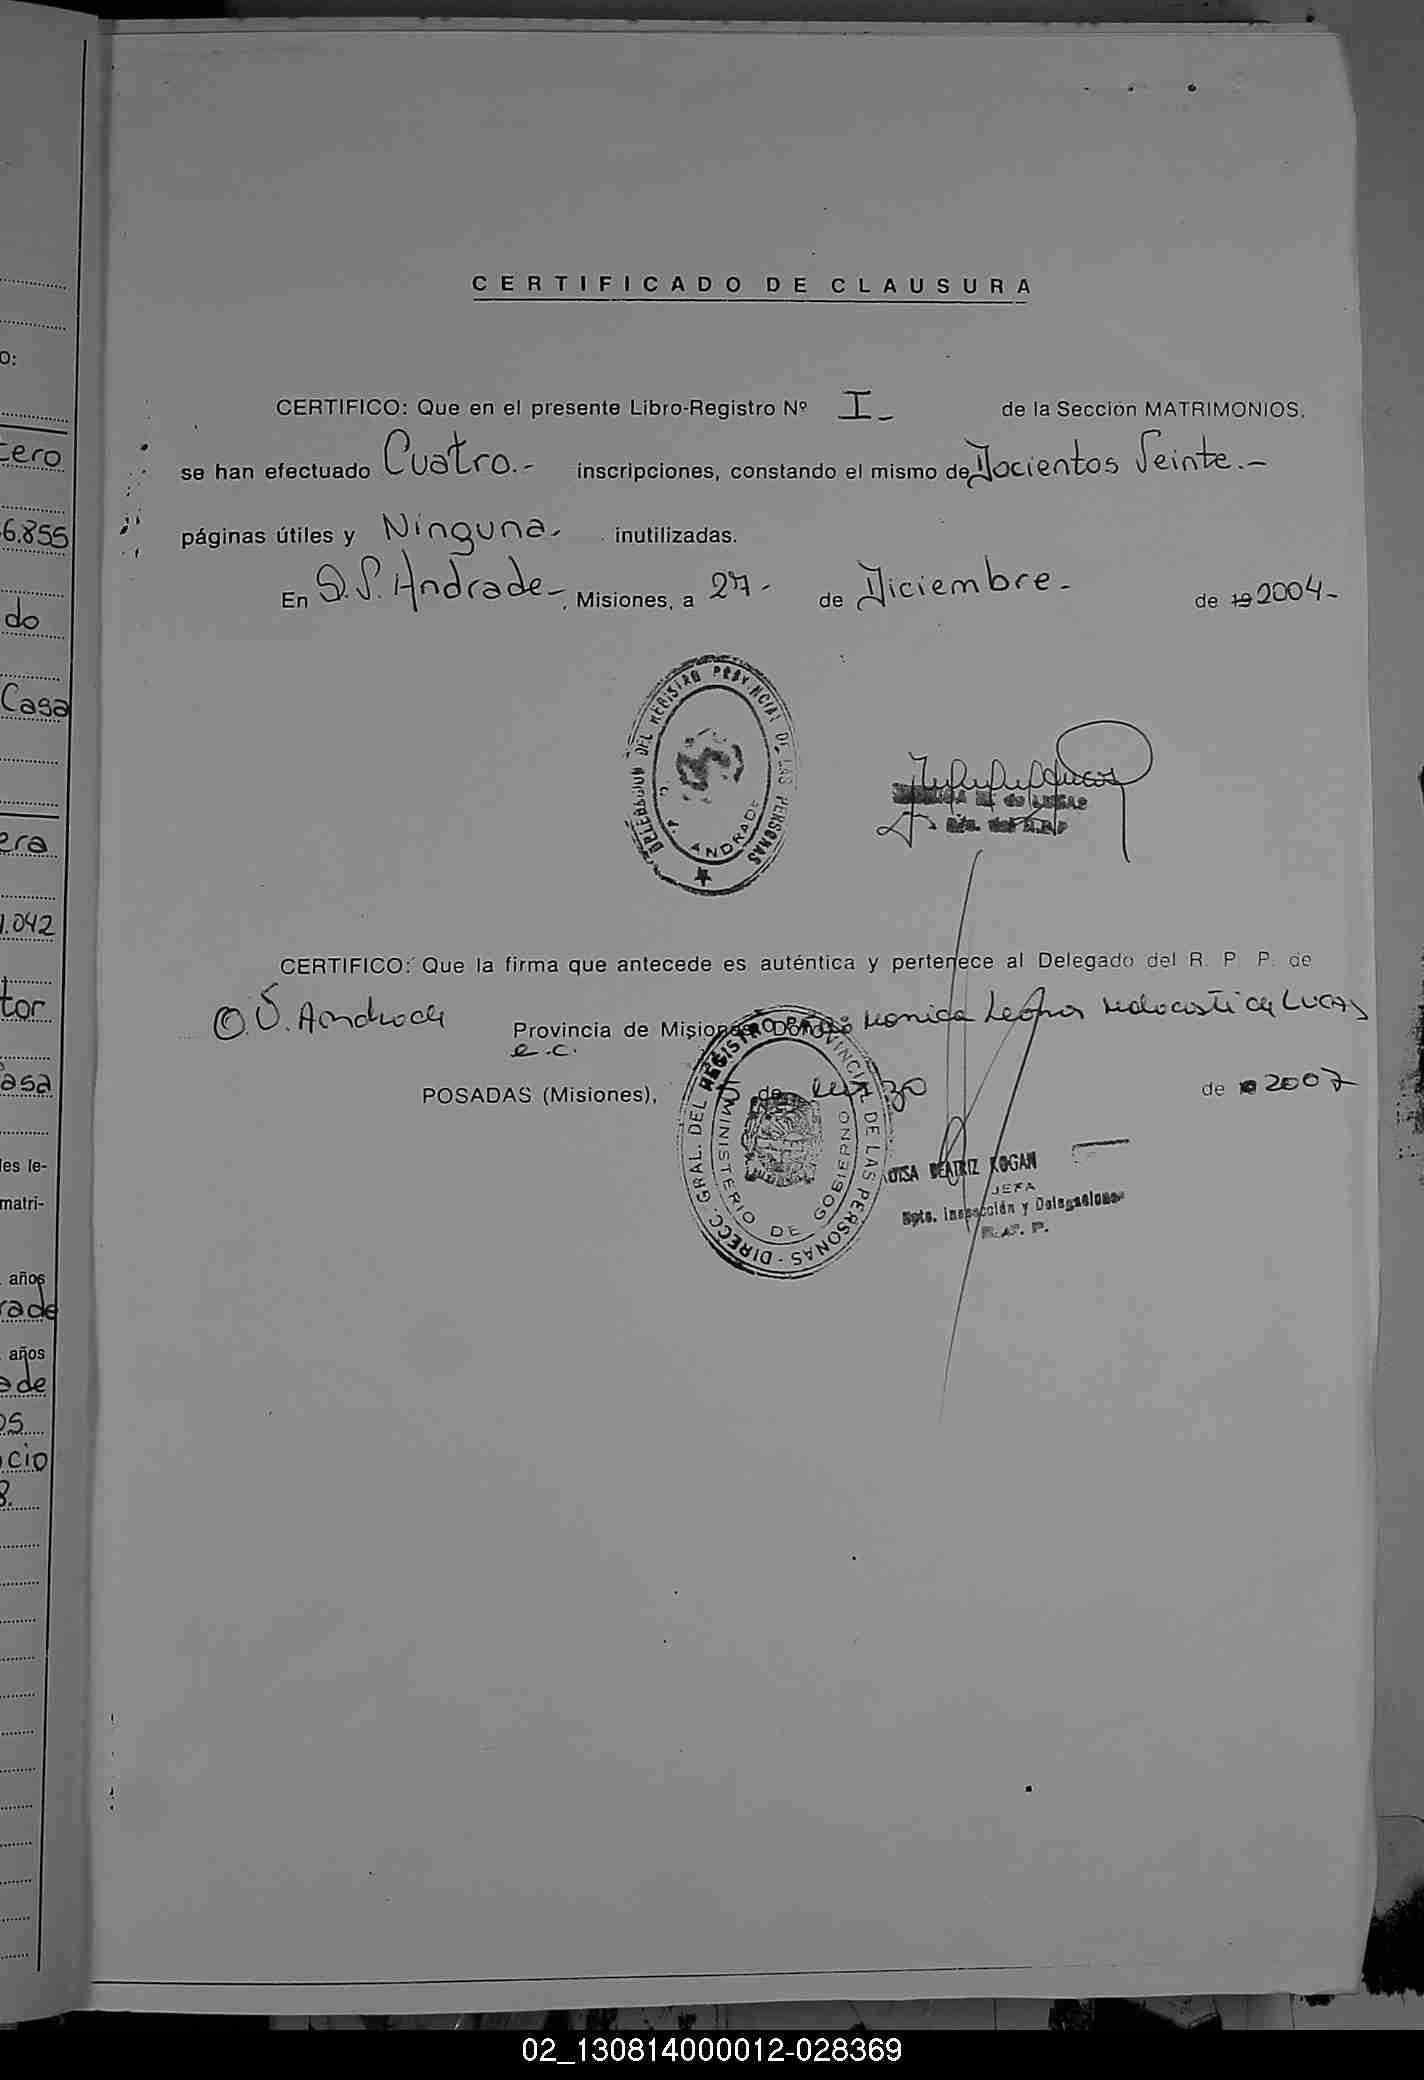 CERTIFICADO DE CLAUSURA
CERTIFICO: Que en el presente Libro-Registro Nº I- de la Sección MATRIMONIOS,
se han efectuado Cuatro.- inscripciones, constando el mismo de Docientos Veinte.-
páginas útiles y Ninguna- inutilizadas.
En O.V. Andrade-, Misiones, a 27- de Diciembre- de 19 2004-
DELEGACION DEL REGISTRO PROVINCIAL DE LAS PERSONAS
ANDRADE
de LUCAS
CERTIFICO: Que la firma que antecede es auténtica y pertenece al Delegado del R. P. P. de
O.V. Andrade Provincia de Misiones, Don Monica Leonor de LUCAS
e.c.
POSADAS (Misiones), de marzo de 2007
DIRECC. GRAL. DEL REGISTRO PROVINCIAL DE LAS PERSONAS -
MINISTERIO DE GOBIERNO
BEATRIZ KOGAN
JEFA
Dpto. Inspección y Delegaciones
R. P. P.
tero
6.855
do
Casa
era
1.042
tor
asa
les le-
matri-
años
rade
años
ade
os
cio
8.
02_130814000012-028369